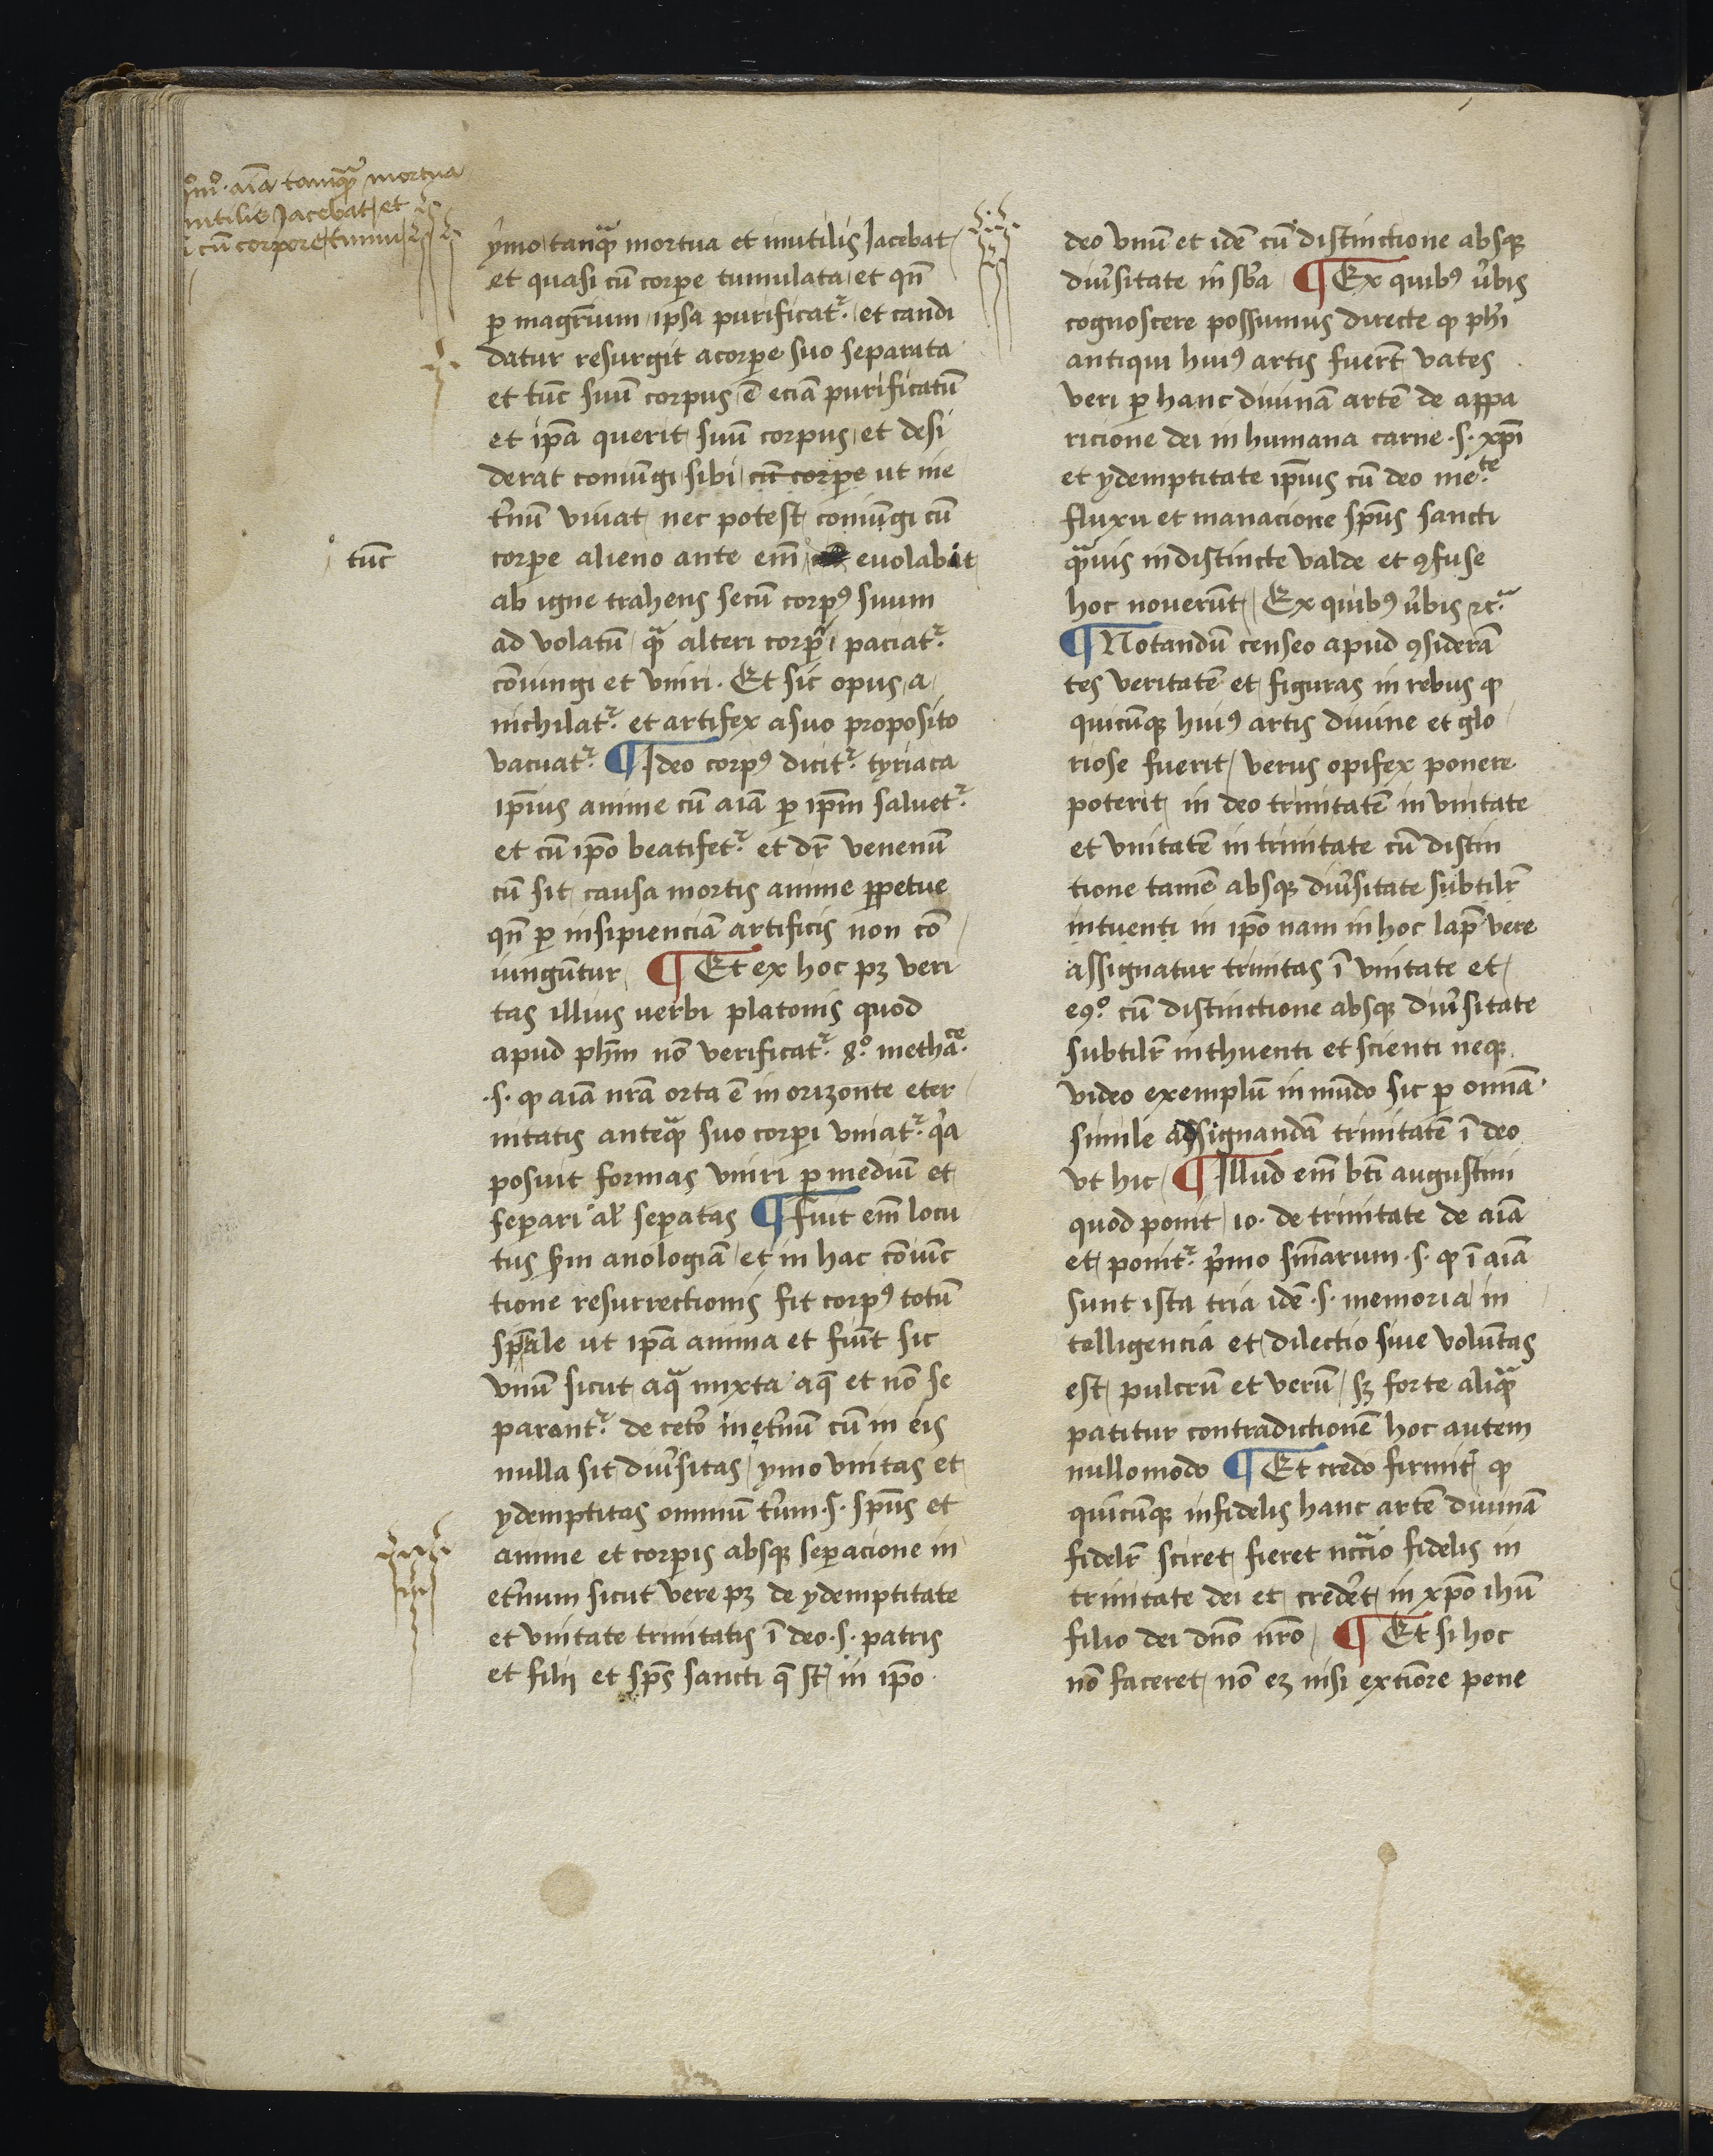 īmo. aīa tamqᷓ mortua
inutilis Jacebat et
cū corpore tumu
ymo tanqᷓ mortua et inutilis Jacebat
et quasi cū corꝑe tumulata et qn̄
ꝑ magr̄ium ipsa purificatᷣ. et candi
datur resurgit acorꝑe suo separata
et tūc suū corpus ē eciā purificatū
et ip̄a querit suū corpus et desi
derat coniūgi sibi cū corꝑe ut ine
tʼnū viuat nec potest coniūgi cū
tūc
corꝑe alieno ante em̄ euolabit
ab igne trahens secū corpꝰ suum
ad volatū qᷓ alteri corꝑi paciatᷣ.
cōiungi et vniri. Et sic opus a
nichilatᷣ. et artifex asuo proposito
vacuatᷣ. ¶ Ideo corpꝰ dicitᷣ. tyriaca
ip̄ius anime cū aīa ꝑ ip̄m saluetᷣ.
et cū ip̄o beatifetᷣ. et dr̄ venenū
cū sit causa mortis anime ꝑpetue
qn̄ ꝑ insipienciā artificis non cō
iungūtur ¶ Et ex hoc pꝫ veri
tas illius uerbi platonis quod
apud ph̄m nō verificatᷣ. 8.º metha.ce
.s. ꝙ aīā nr̄a orta ē in orizonte eter
nitatis anteqᷓ suo corꝑi vniatᷣ. qʼa
posuit formas vniri ꝑ mediū et
seꝑari al̄ seꝑatas ¶ fuit em̄ locu
tus ẜm anologiā et in hac cōiūc
tione resurrectionis fit corpꝰ totū
sp̄ale ut ip̄a anima et fiūt sic
vnū sicut aqᷓ mixta aq̄ et nō se
parantᷣ. de cetʼo inetʼnū cū in eis
nulla sit diuʼsitas ymo vnitas et
ydemptitas omniū tʼum .s. sp̄us et
anime et corꝑis absqꝫ seꝑacione in
etʼnum sicut vere pꝫ de ydemptitate
et vnitate trinitatis ī deo .s. patris
et filii et sp̄s sancti q̄ st̄ in ip̄o.
deo vnū et idē cū distinctione absqꝫ
diuʼsitate in sb̄a ¶ Ex quibꝰ ubʼis
cognoscere possumus directe ꝙ ph̄i
antiqui huiꝰ artis fuerūt vates
veri ꝑ hanc diuinā artē de appa
ricione dei in humana carne .s. xp̄i
et ydemptitate ip̄ius cū deo me.te
fluxu et manacione sp̄us sancti
qᷓuis indistincte valde et ꝯfuse
hoc nouerūt Ex quibꝰ ubʼis ⁊c̄.
¶ Notandū censeo apud ꝯsiderā
tes veritatē et figuras in rebus ꝙ
quicūqꝫ huiꝰ artis diuine et glo
riose fuerit verus opifex ponere
poterit in deo trinitatē in vnitate
et vnitatē in trinitate cū distin
tione tamē absqꝫ diuʼsitate subtilr̄
intuenti in ip̄o nam in hoc lap̄ vere
assignatur trinitas ī vnitate et
eꝯº. cū distinctione absqꝫ diuʼsitate
subtilr̄ inthuenti et scienti neqꝫ
video exemplū in mūdo sic ꝑ omniā
simile adsignandā trinitatē ī deo
vt hic ¶ Illud em̄ bt̄i augustini
quod ponit 10. de trinitate de aīa
et ponitᷣ. pʼmo sm̄arum .s. ꝙ ī aīa
sunt ista tria idē .s. memoria in
telligencia et dilectio siue volūtas
est pulcrū et verū sꝫ forte aliqᷓ
patitur contradictionē hoc autem
nullomodo ¶ Et credo firmit̄ ꝙ
quicūqꝫ infidelis hanc artē diuinā
fidelr̄ sciret fieret nc̄cᷓio fidelis in
trinitate dei et credʼet in xp̄o ihū
filio dei dn̄o nr̄o ¶ Et si hoc
nō faceret nō eꝫ nisi extiōre pene